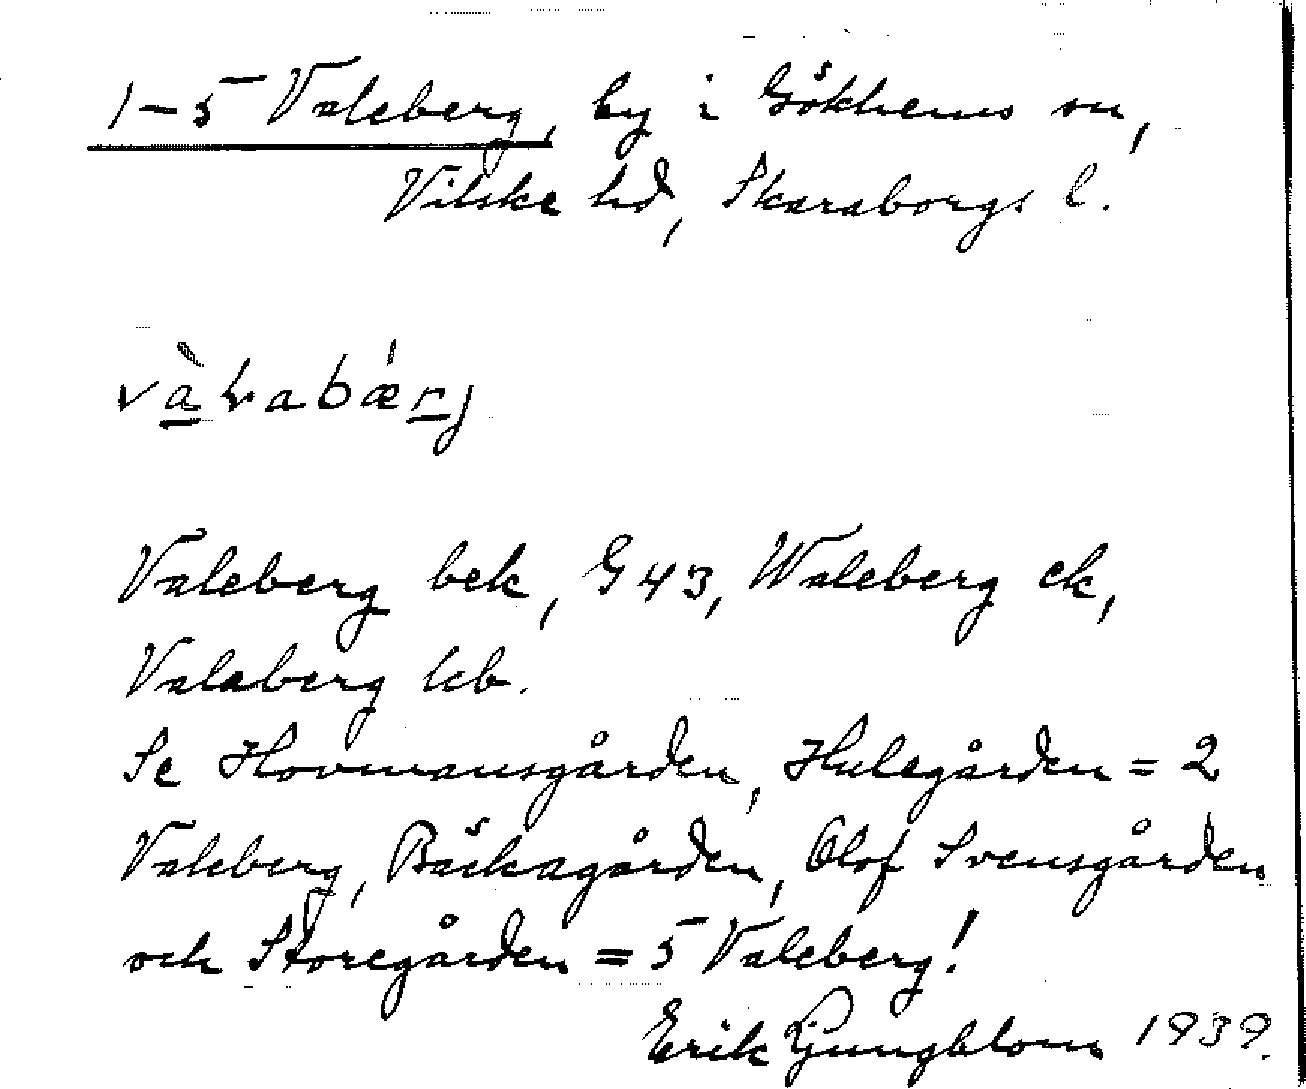 1–5 Valeberg, by i Gökhems sn,
Vilske hd, Skaraborgs l.
Valeberg bek, G 43, Waleberg ek,
Valaberg kb.
Se Hovmansgården, Hulegården = 2
Valeberg, Bäckagården, Olof Svensgården
och Storegården = 5 Valeberg!
Erik Ljungblom 1939.